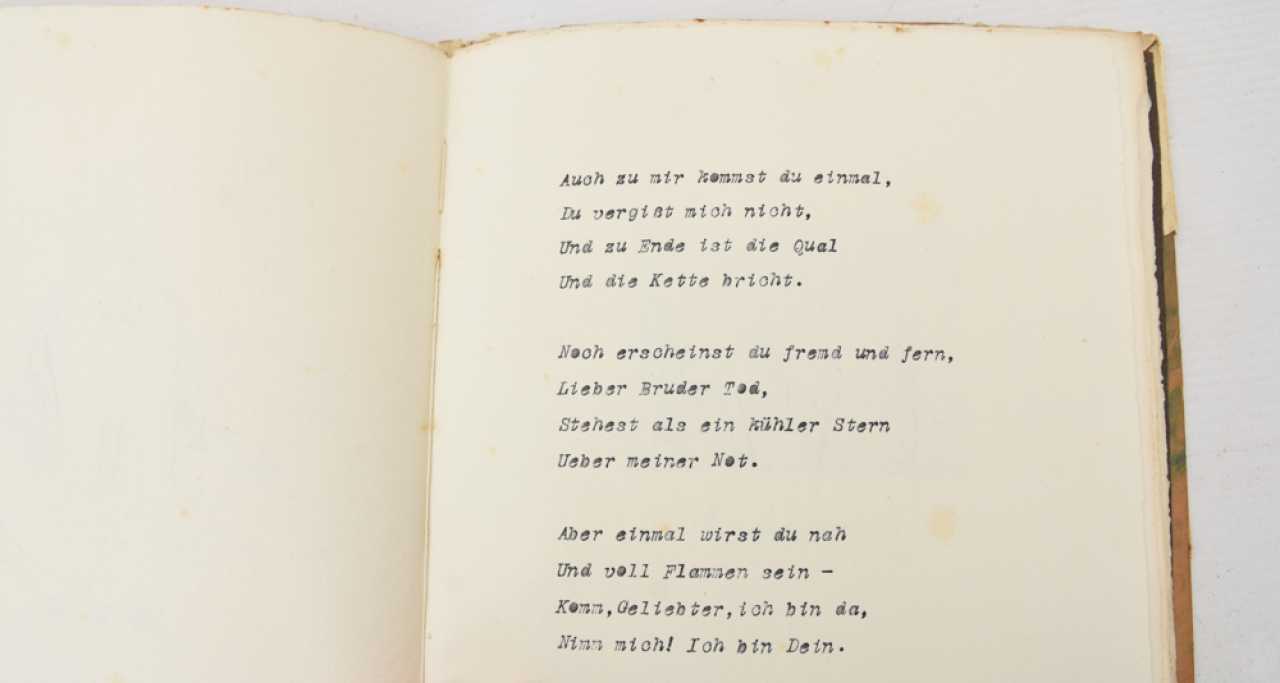 Auch zu mir kommst du einmal,
Du vergißt mich nicht,
Und zu Ende ist die Qual
Und die Kette bricht.
Noch erscheinst du fremd und fern,
Lieber Bruder Tod,
Stehest als ein kühler Stern
Ueber meiner Not.
Aber einmal wirst du nah
Und voll Flammen sein -
Komm,Geliebter,ich bin da,
Nimm mich! Ich bin Dein.